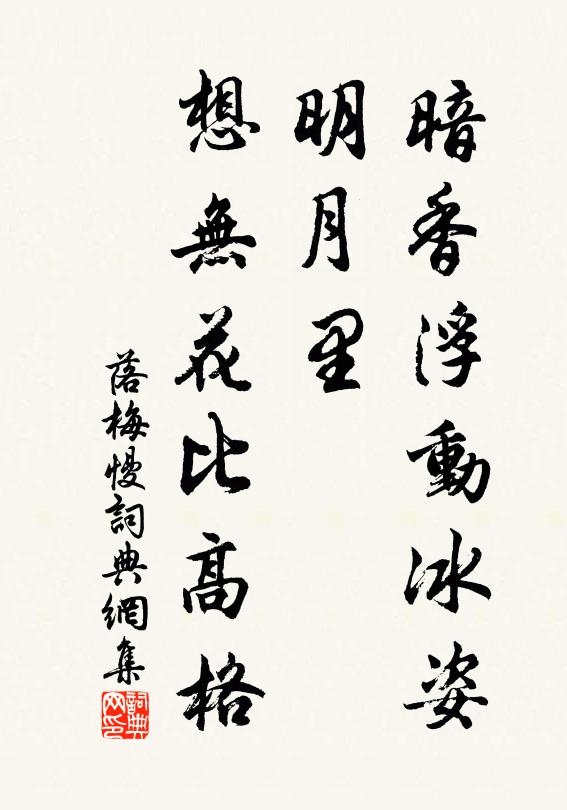 暗香浮動冰姿
明月里
想無花比高格
落梅慢詞典網集
詞典
网印